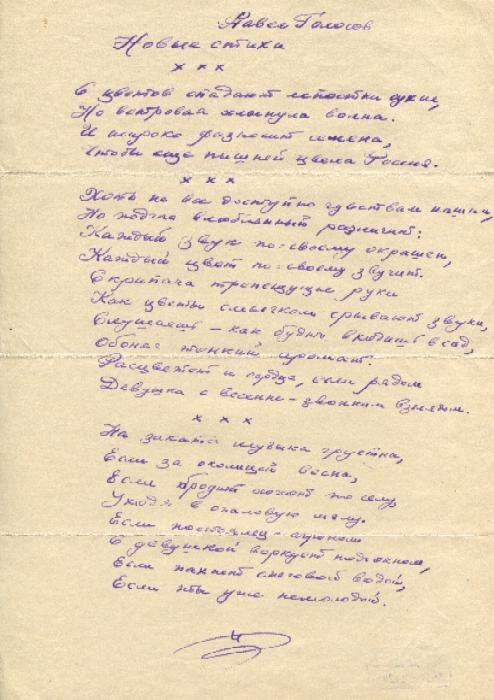 Павел Голосов
Новые стихи
× × ×
С цветов спадают лепестки сухие,
Но ветровая хлынула волна.
И широко разносит семена,
Чтобы ещё пышней цвела Россия.
× × ×
Хоть не все доступно чувствам нашим,
Но подчас влюбленный различит:
Каждый звук по-своему окрашен,
Каждый цвет по-своему звучит.
Скрипача трепещущие руки
Как цветы смычком срывают звуки,
Слушаешь – как будто входишь в сад,
Обоняя тонкий аромат.
Расцветет и сердце, если рядом
Девушка с весенне-звонким взглядом.
× × ×
На закате музыка грустна,
Если за околицей весна,
Если бродит по селу,
Уходя в опаловую мглу.
Если постоялец-агроном
С девушкой воркует под окном,
Если пахнет снеговой водой,
Если ты уже немолодой.